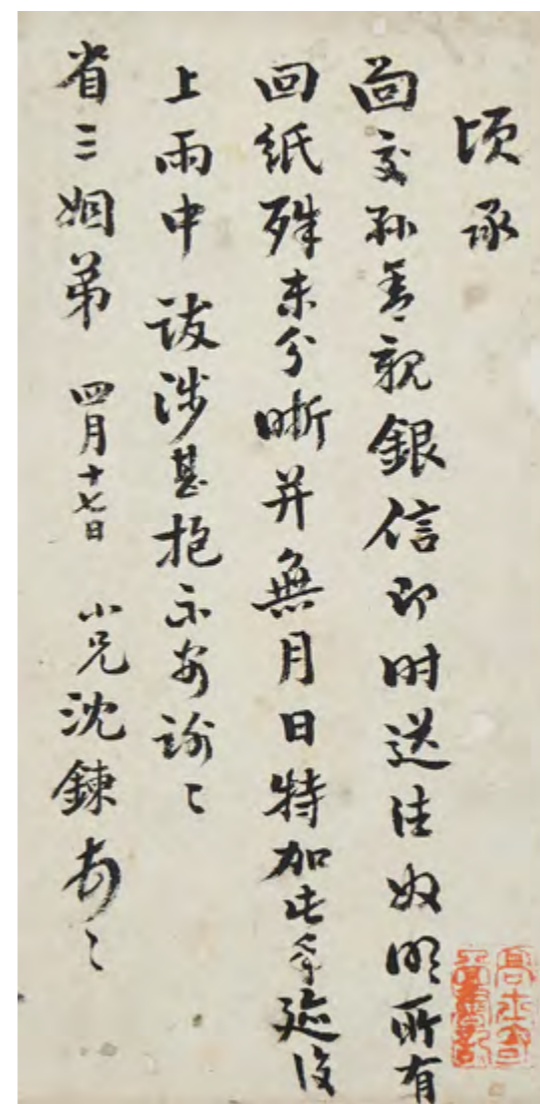 頃承
面交孙春親銀信即时送往收明所有
回紙殊未分晰并無月日特加此条
上雨中跋涉甚抱不安
省三姻弟 四月十七日 小兄沈鍊